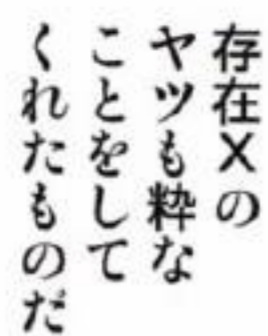 存在Xの
ヤツも粋な
ことをして
くれたものだ